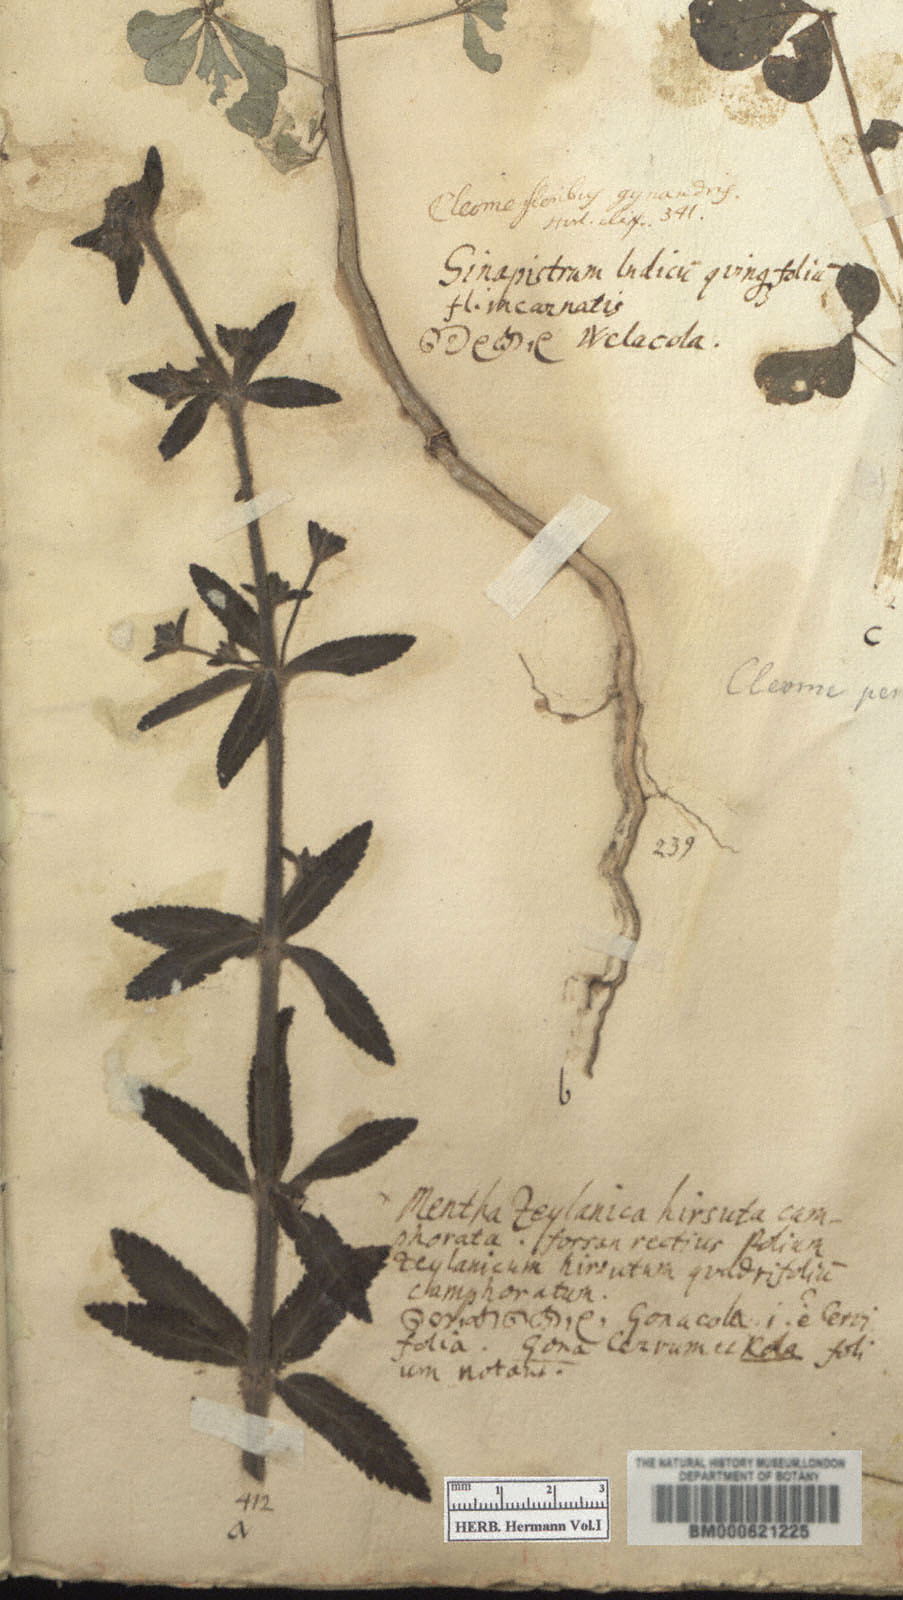 Cleome floribus gynandris.
Hort. cliff. 341.
Sinapistrum Indicū quinqfoliū
fl. incarnatis
Welacola.
C
Cleome pen
239
b
Mentha Zeylanica hirsuta cam-
phorata. forsan rectius folium
Zeylanicum hirsutum quadrifoliū
camphoratum.
Gonacola. i. è Cervi
folia. Gona Cervum et Kola foli
um notans.
412
a
mm 1 2 3
HERB. Hermann Vol.I
THE NATURAL HISTORY MUSEUM,LONDON
DEPARTMENT OF BOTANY
BM000621225